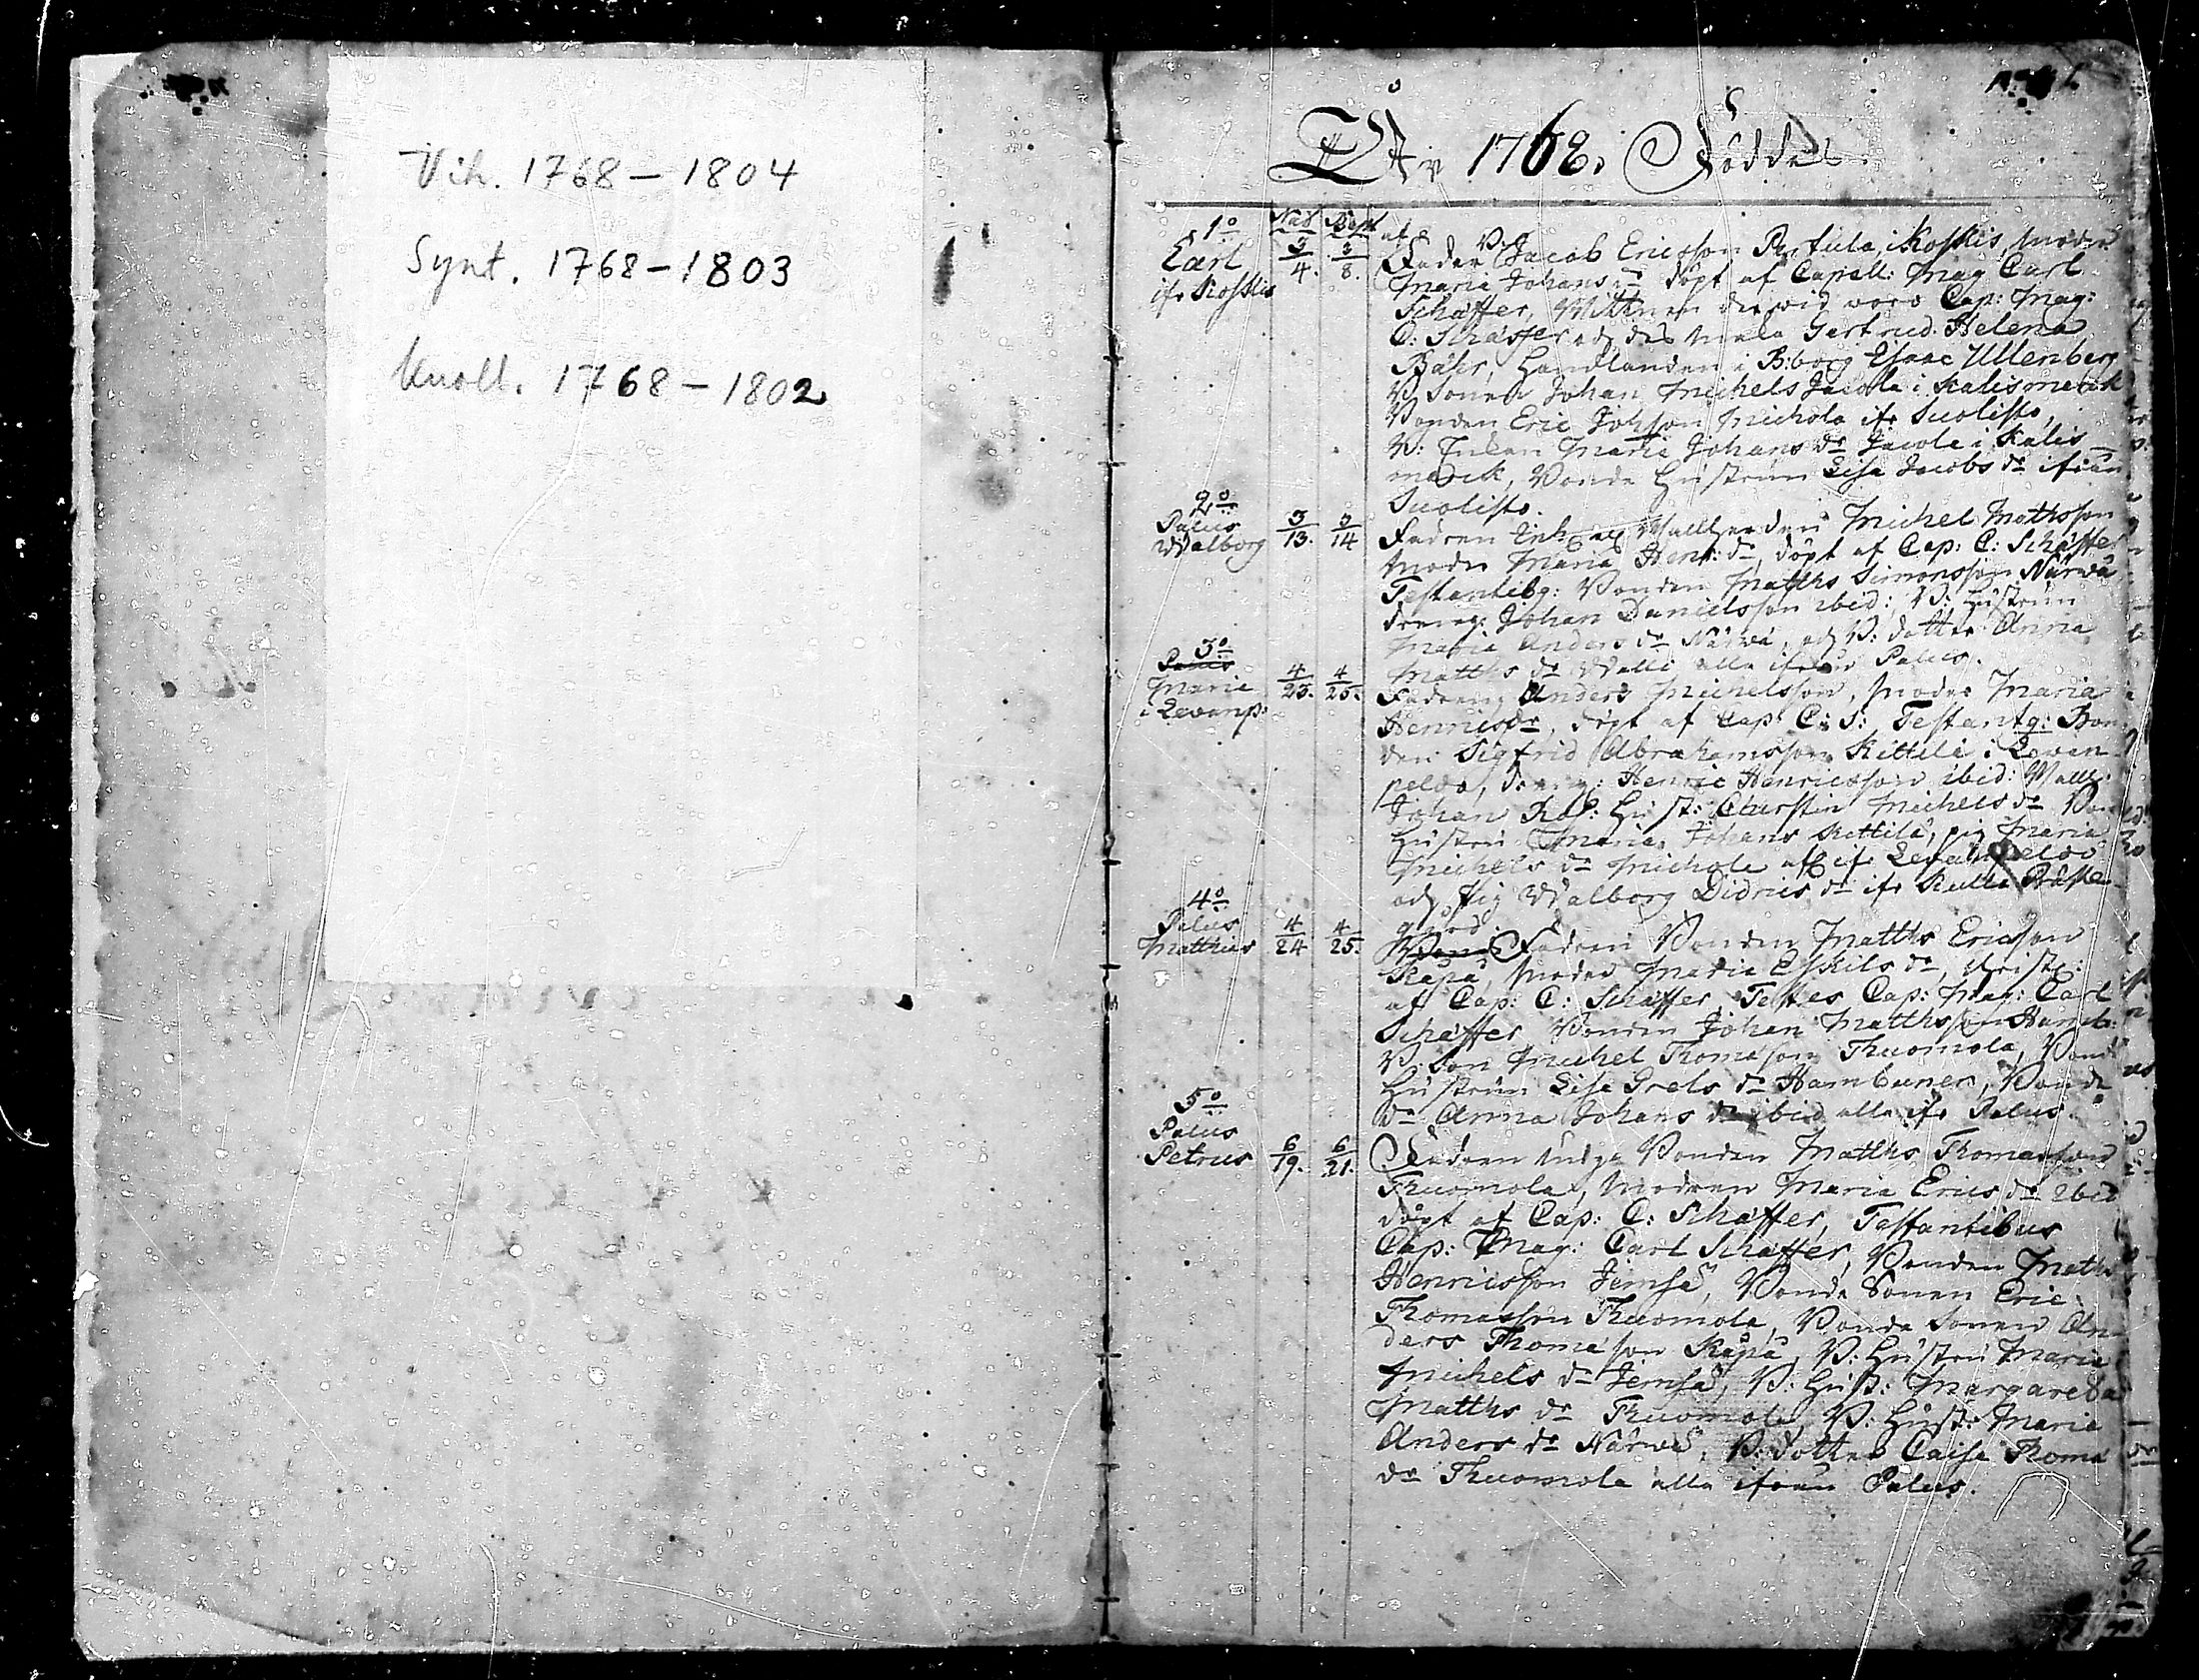 Vih. 1768 – 1804
Synt. 1768 – 1803
Kuoll. 1768 – 1802
År 1768. Födde
1o
Carl
ifr Koskis
Nat Bapt
3/4. 3/8.
Fader B: Jacob Ericsson Pertula i Koskis, Moder
Maria Johans dr döpt af Capell: Mag Carl
Schæffer, Wittnen der wid woro Cap: Mag:
C: Schæffer och des Maka Gertrud Helena
Bähr, Handlanden i B:borg Isaac Ullenberg
B Sonen Johan Michels Jacola i Kalismarck
Bonden Eric Johsson Michola ifr Suolisto,
B: Enkan Maria Johans dr Jacola i Kalis
marck, Bonde Hustrun Lisa Jacobs dr ifrån
Suolisto.
2o
Palus
Walborg
3/13. 3/14
Fadren Michel Mathsson
Moder Maria Henr: dr, döpt af Cap: C: Schæffer
Testantibg: Bonden Matths Simonsson Närwä
dreng: Johan Danielsson ibid: B: Hustrun
Maria Anders dr Närwä, och B: dotter Anna
Matths dr Walli alla ifrån Palus.
3o
Palus
Maria
i Levanp:
4/23. 4/25.
Fadren Anders Michelsson, Moder Maria
Henrics dr, döpt af Cap: C: S: Testantg: Bon
den Sigfrid Abrahamsson Kittilä i Levan
peldo, dreng: Henric Henricsson ibid: Wall:
Johan Hust: Carstin Michels dr Bon
Hustru Maria Johans Kittilä, pig Maria
Michels dr Michola ifr Levanpeldo
och Pig Walborg Didrics dr ifr Kulla Præste
gård.
4o
Palus
Matthias
4/24 4/25.
Fadren Bonden Matths Ericsson
Käpä, Moder Maria Eskils dr, christ:
af Cap: C: Schæffer Testes Cap: Mag: Carl
Schæffer Bonden Johan Matthsson Hamb:
B: Son Michel Thomasson Thuomola, Bond
Hustrun Lisa Grels dr Hambuner, Bonde
dr Anna Johans dr ibid alla ifr Palus.
5o
Palus
Petrus
6/19. 6/21.
Fadren unge Bonden Matths Thomasson
Thuomola, Modren Maria Erics dr ibid
döpt af Cap: C: Schæffer, Testantibus
Cap: Mag: Carl Schæffer, Bonden Matths
Henricsson Jemsä, Bonde Sonen Eric
Thomasson Thuomola, Bonde Sonen An
ders Thomasson Käpä, B: Hustru Maria
Michels dr Jemsä, B: Hust: Margareta
Matths dr Thuomola, B: Hust: Maria
Anders dr Närwä, B: dotter Caisa Thoma
dr Thuomola alla ifrån Palus.